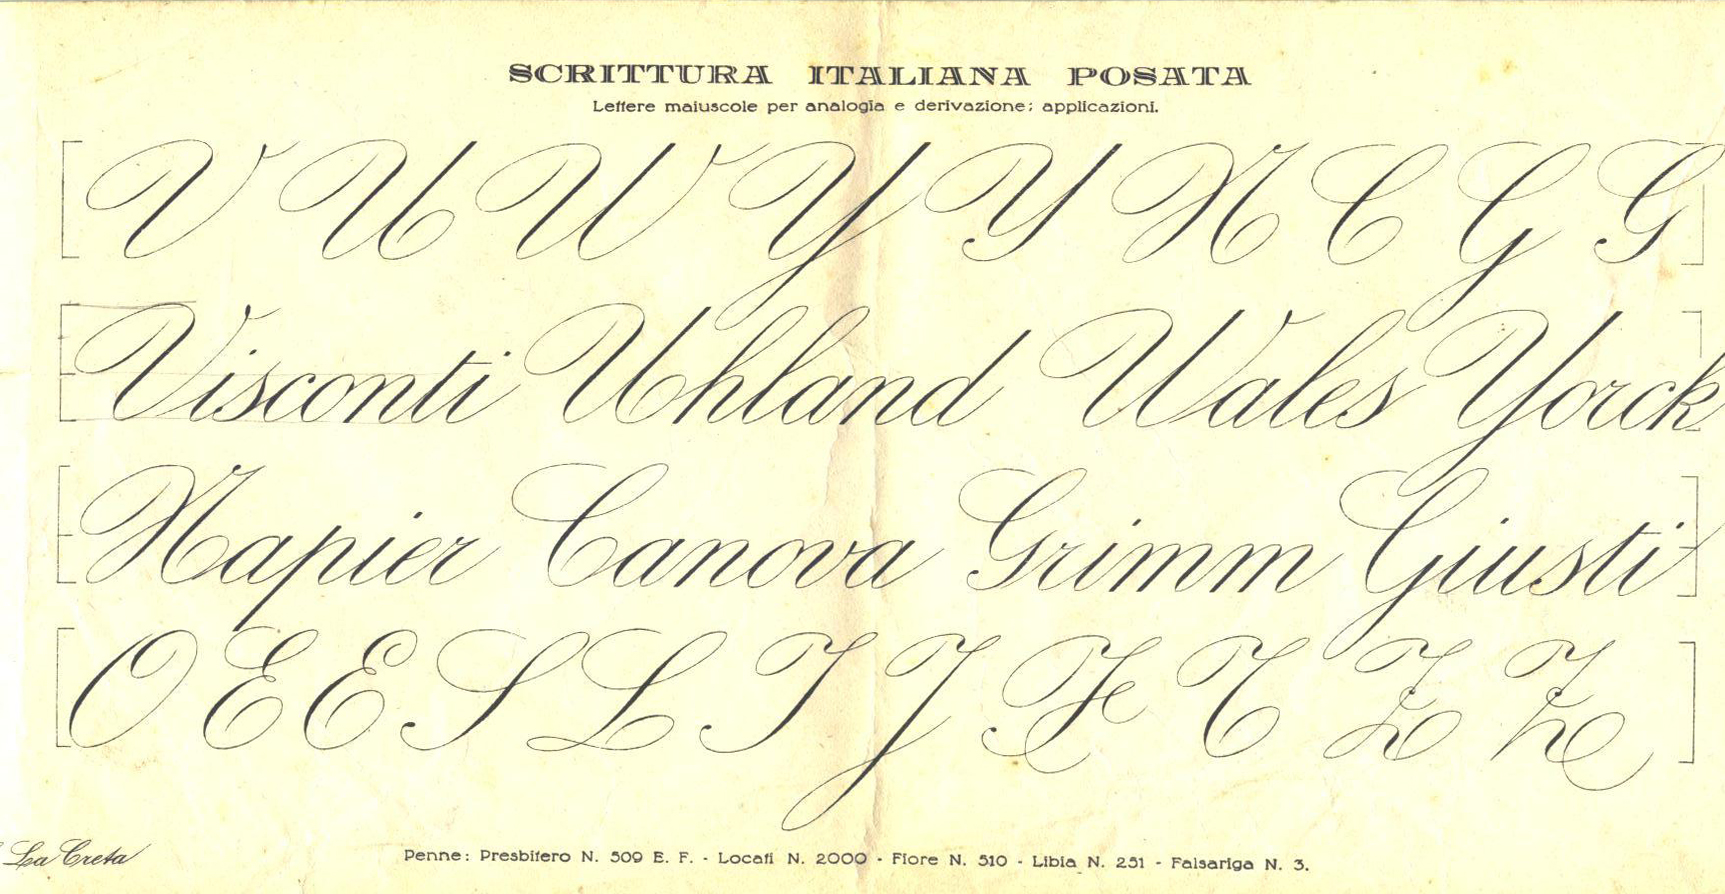 SCRITTURA ITALIANA POSATA
Lettere maiuscole per analogia e derivazione; applicazioni.
V U W Y Y X C G G
Visconti Uhland Wales Yorck
Xapier Canova Grimm Giusti
O E E S L I J F T Z Z
La Creta
Penne: Presbitero N. 509 E. F. - Locati N. 2000 - Fiore N. 510 - Libia N. 251 - Falsariga N. 3.